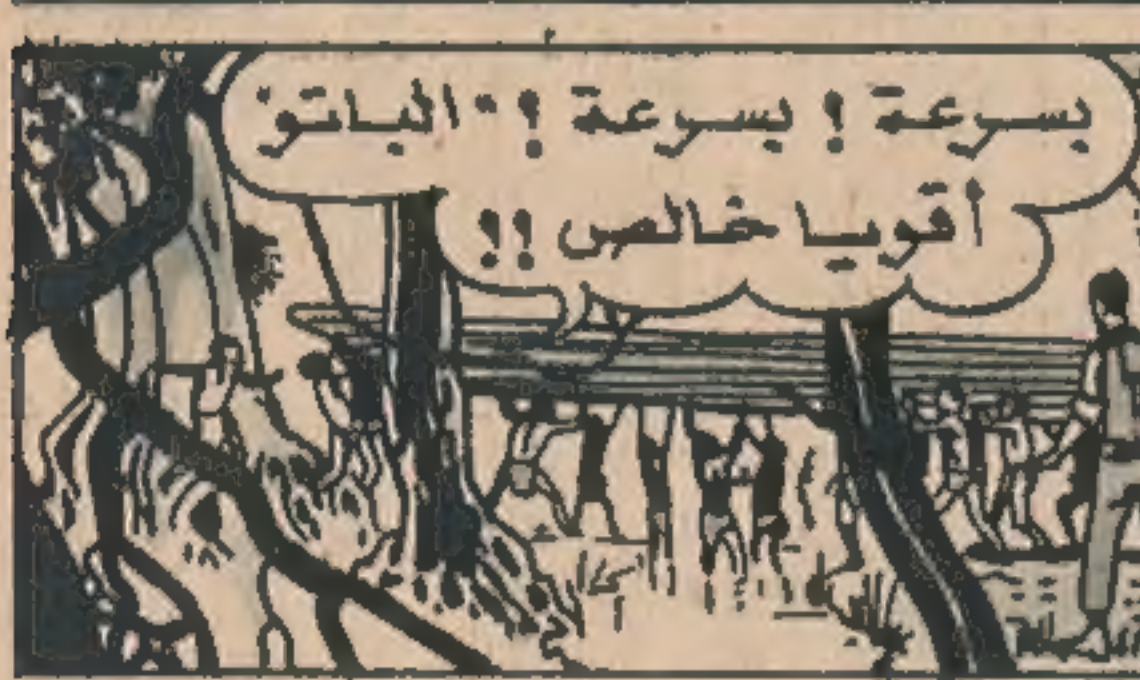 بسرعة ! بسرعة ! الباتو
أقويا خالص !!